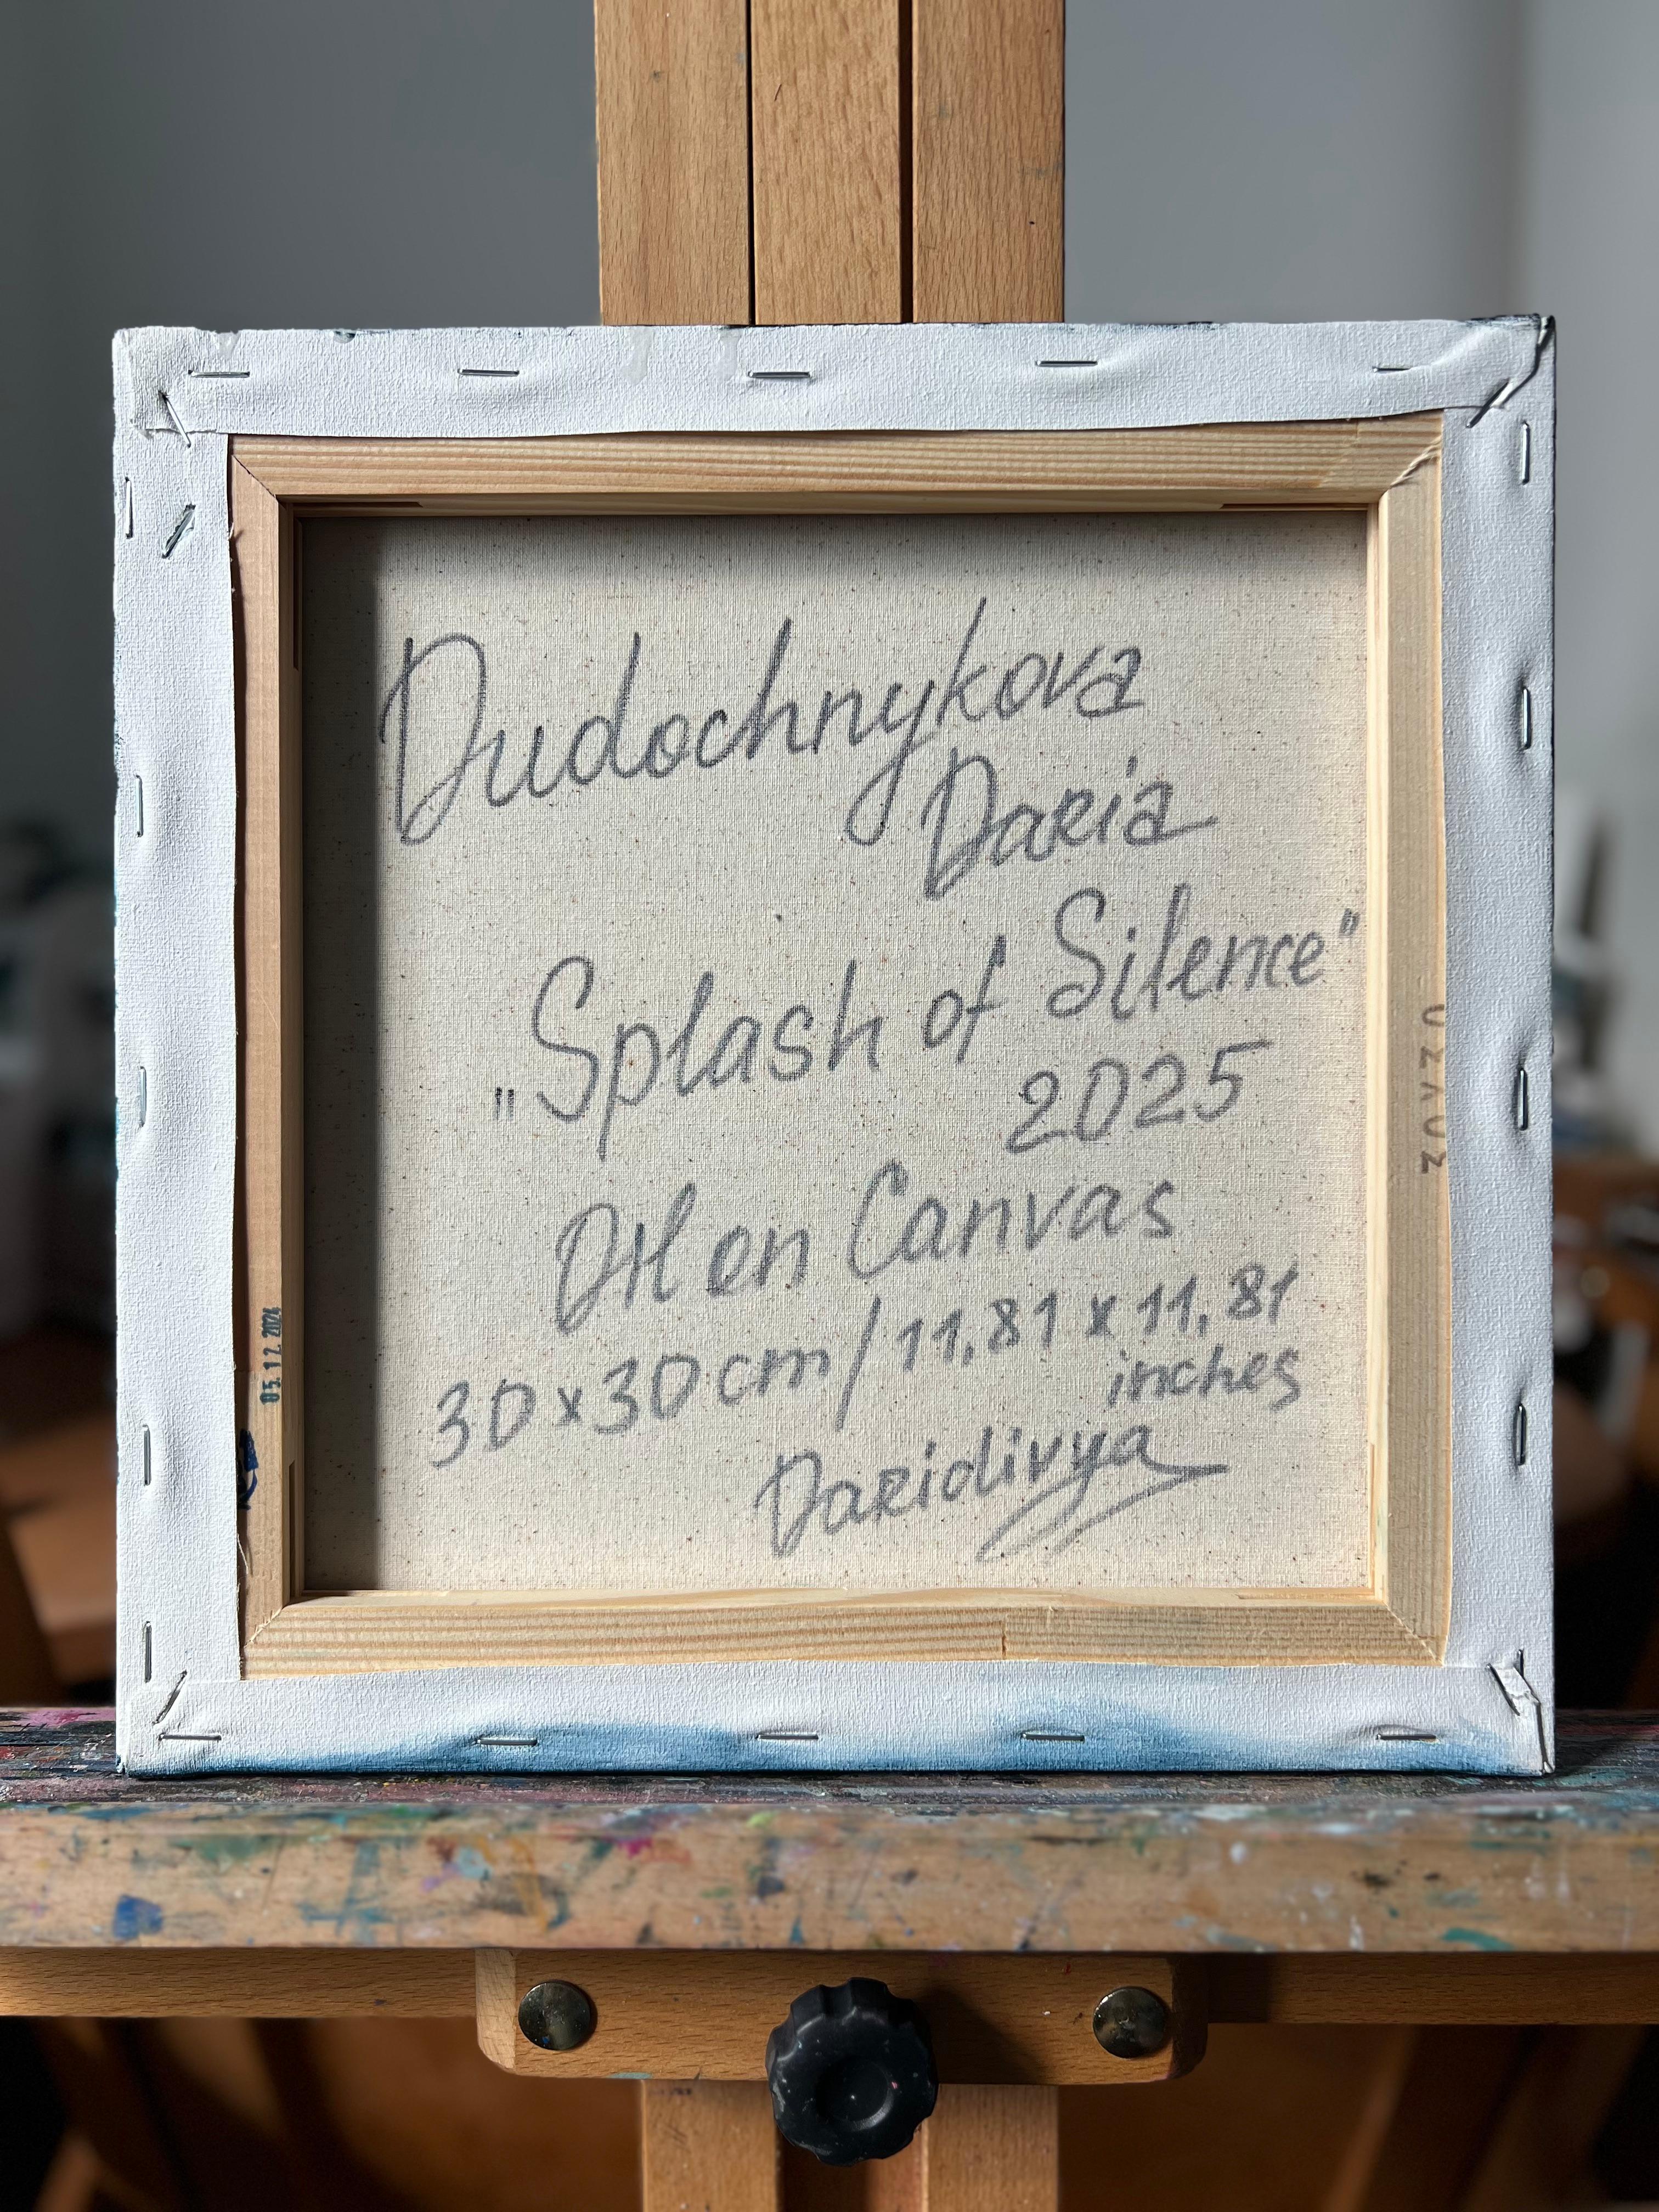 Dudochnykova
Daria
„Splash of Silence"
2025
Oil on Canvas
30x30cm/11,81 x 11,81
inches
Daridivya
05.12.2024
30x30